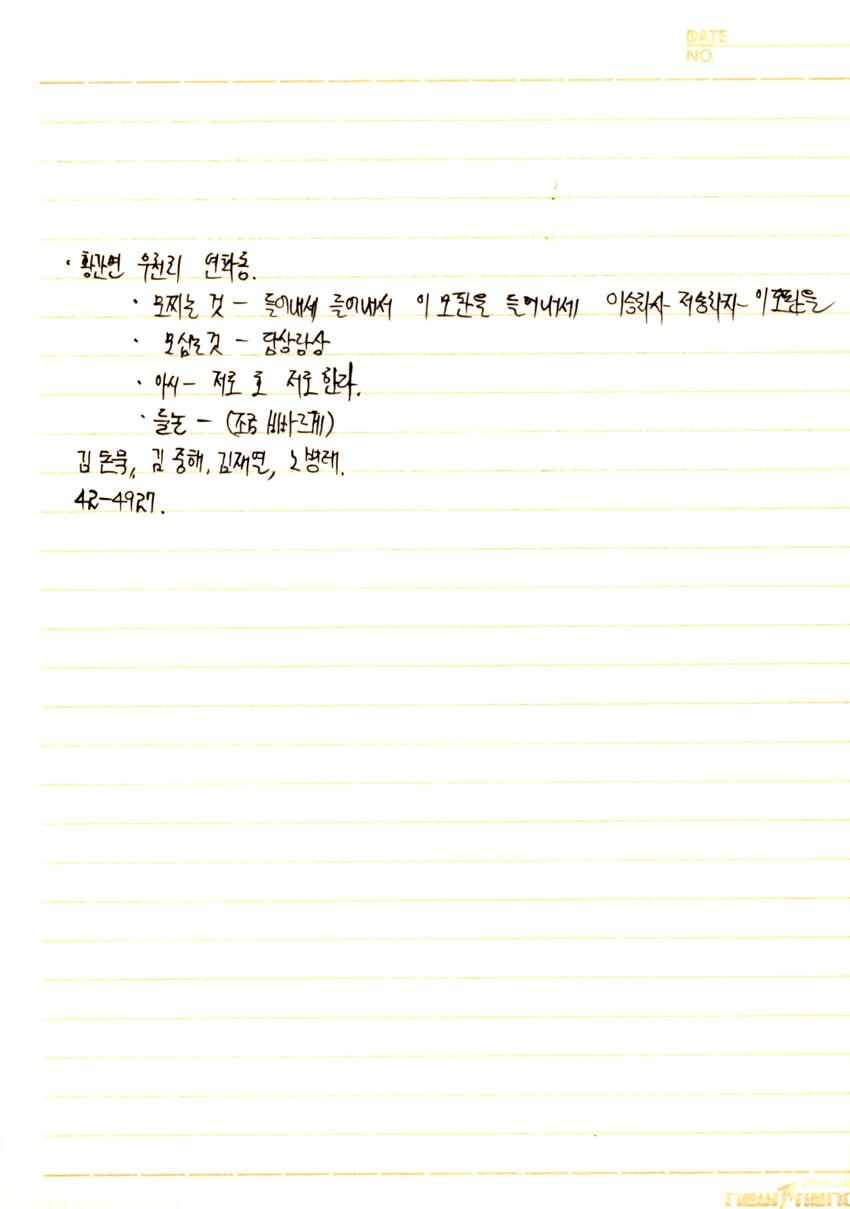 DATE
NO.
· 황간면 우천리 연화동.
· 모찌는 것 - 들어내세 들어내서 이 모판을 들어내세 이승리사 저승리자 이 모판을
· 모심는것 - 담상담상
· 아시 - 저로 호 저로한다.
· 들논 - (조금 빠르게)
김돈욱, 김중해, 김재면, 노병래.
42-4927.